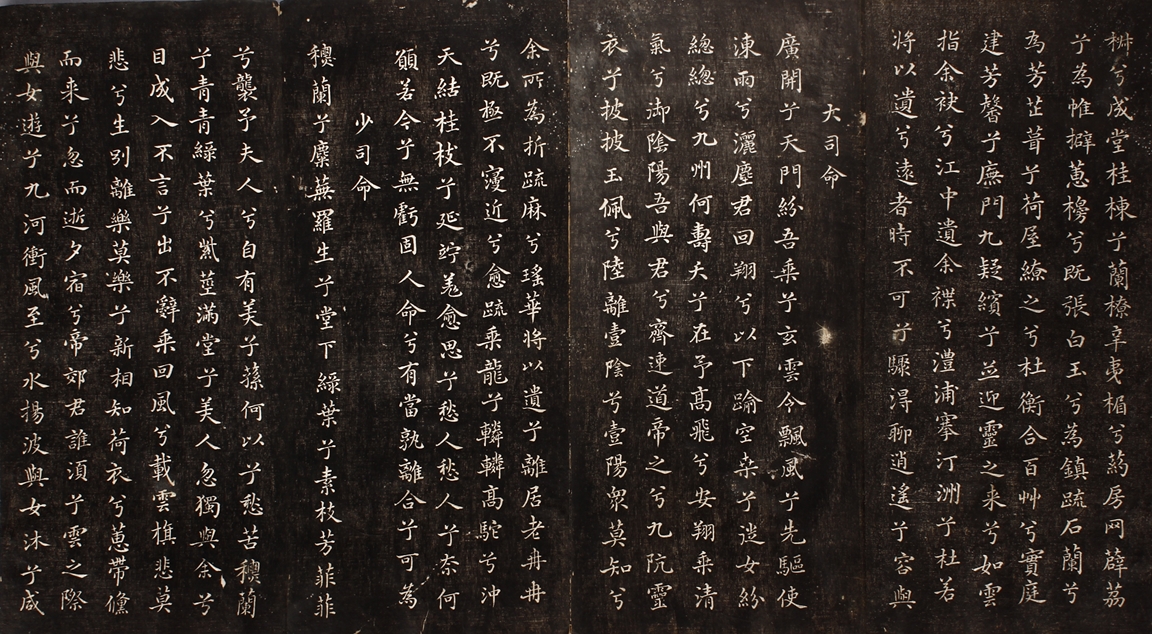 椒兮成堂桂棟兮蘭橑辛夷楣兮葯房网薜荔
兮為帷擗蕙櫋兮既張白玉兮為鎮疏石蘭兮
為芳芷葺兮荷屋繚之兮杜衡合百艸兮實庭
建芳馨兮廡門九疑繽兮並迎靈之来兮如雲
指余袂兮江中遺余褋兮澧浦搴汀洲兮杜若
将以遺兮遠者時不可兮驟得聊逍遥兮容與
大司命
廣開兮天門紛吾乘兮玄雲令飄風兮先驅使
涷雨兮灑塵君回翔兮以下踰空桒兮從女紛
總總兮九州何壽夭兮在予高飛兮安翔乘清
氣兮御陰陽吾與君兮齋速道帝之兮九阬靈
衣兮披披玉佩兮陸離壹陰兮壹陽衆莫知兮
余所為折疏麻兮瑶華将以遺兮離居老冉冉
兮既極不寖近兮愈疏乘龍兮轔轔高駝兮沖
天結桂枝兮延竚羌愈思兮愁人愁人兮奈何
願若今兮無虧固人命兮有當孰離合兮可為
少司命
秋蘭兮麋蕪羅生兮堂下綠葉兮素枝芳菲菲
兮襲予夫人兮自有美子蓀何以兮愁苦秋蘭
兮青青綠葉兮紫莖滿堂兮美人忽獨與余兮
目成入不言兮出不辭乘回風兮載雲旗悲莫
悲兮生別離樂莫樂兮新相知荷衣兮蕙帶儵
而来兮忽而逝夕宿兮帝郊君誰湏兮雲之際
與女遊兮九河衝風至兮水揚波與女沐兮咸